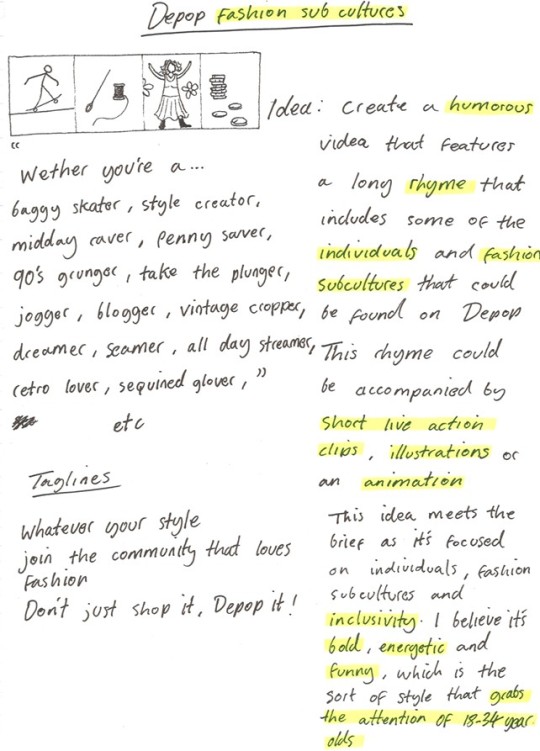 Depop fashion sub cultures
"
Wether you're a...
baggy skater, style creator,
midday raver, penny saver,
90's grunger, take the plunger,
jogger, blogger, vintage cropper,
dreamer, seamer, all day streamer,
retro lover, sequined glover, "
etc
Taglines
Whatever your style
join the community that loves
Fashion
Don't just shop it, Depop it!
Idea: Create a humorous
videa that features
a long rhyme that
includes some of the
individuals and fashion
subcultures that could
be found on Depop
This rhyme could
be accompanied by
short live action
clips, illustrations or
an animation
This idea meets the
brief as it's focused
on individuals, fashion
subcultures and
inclusivity. I believe it's
bold, energetic and
funny, which is the
sort of style that grabs
the attention of 18-34 year
olds